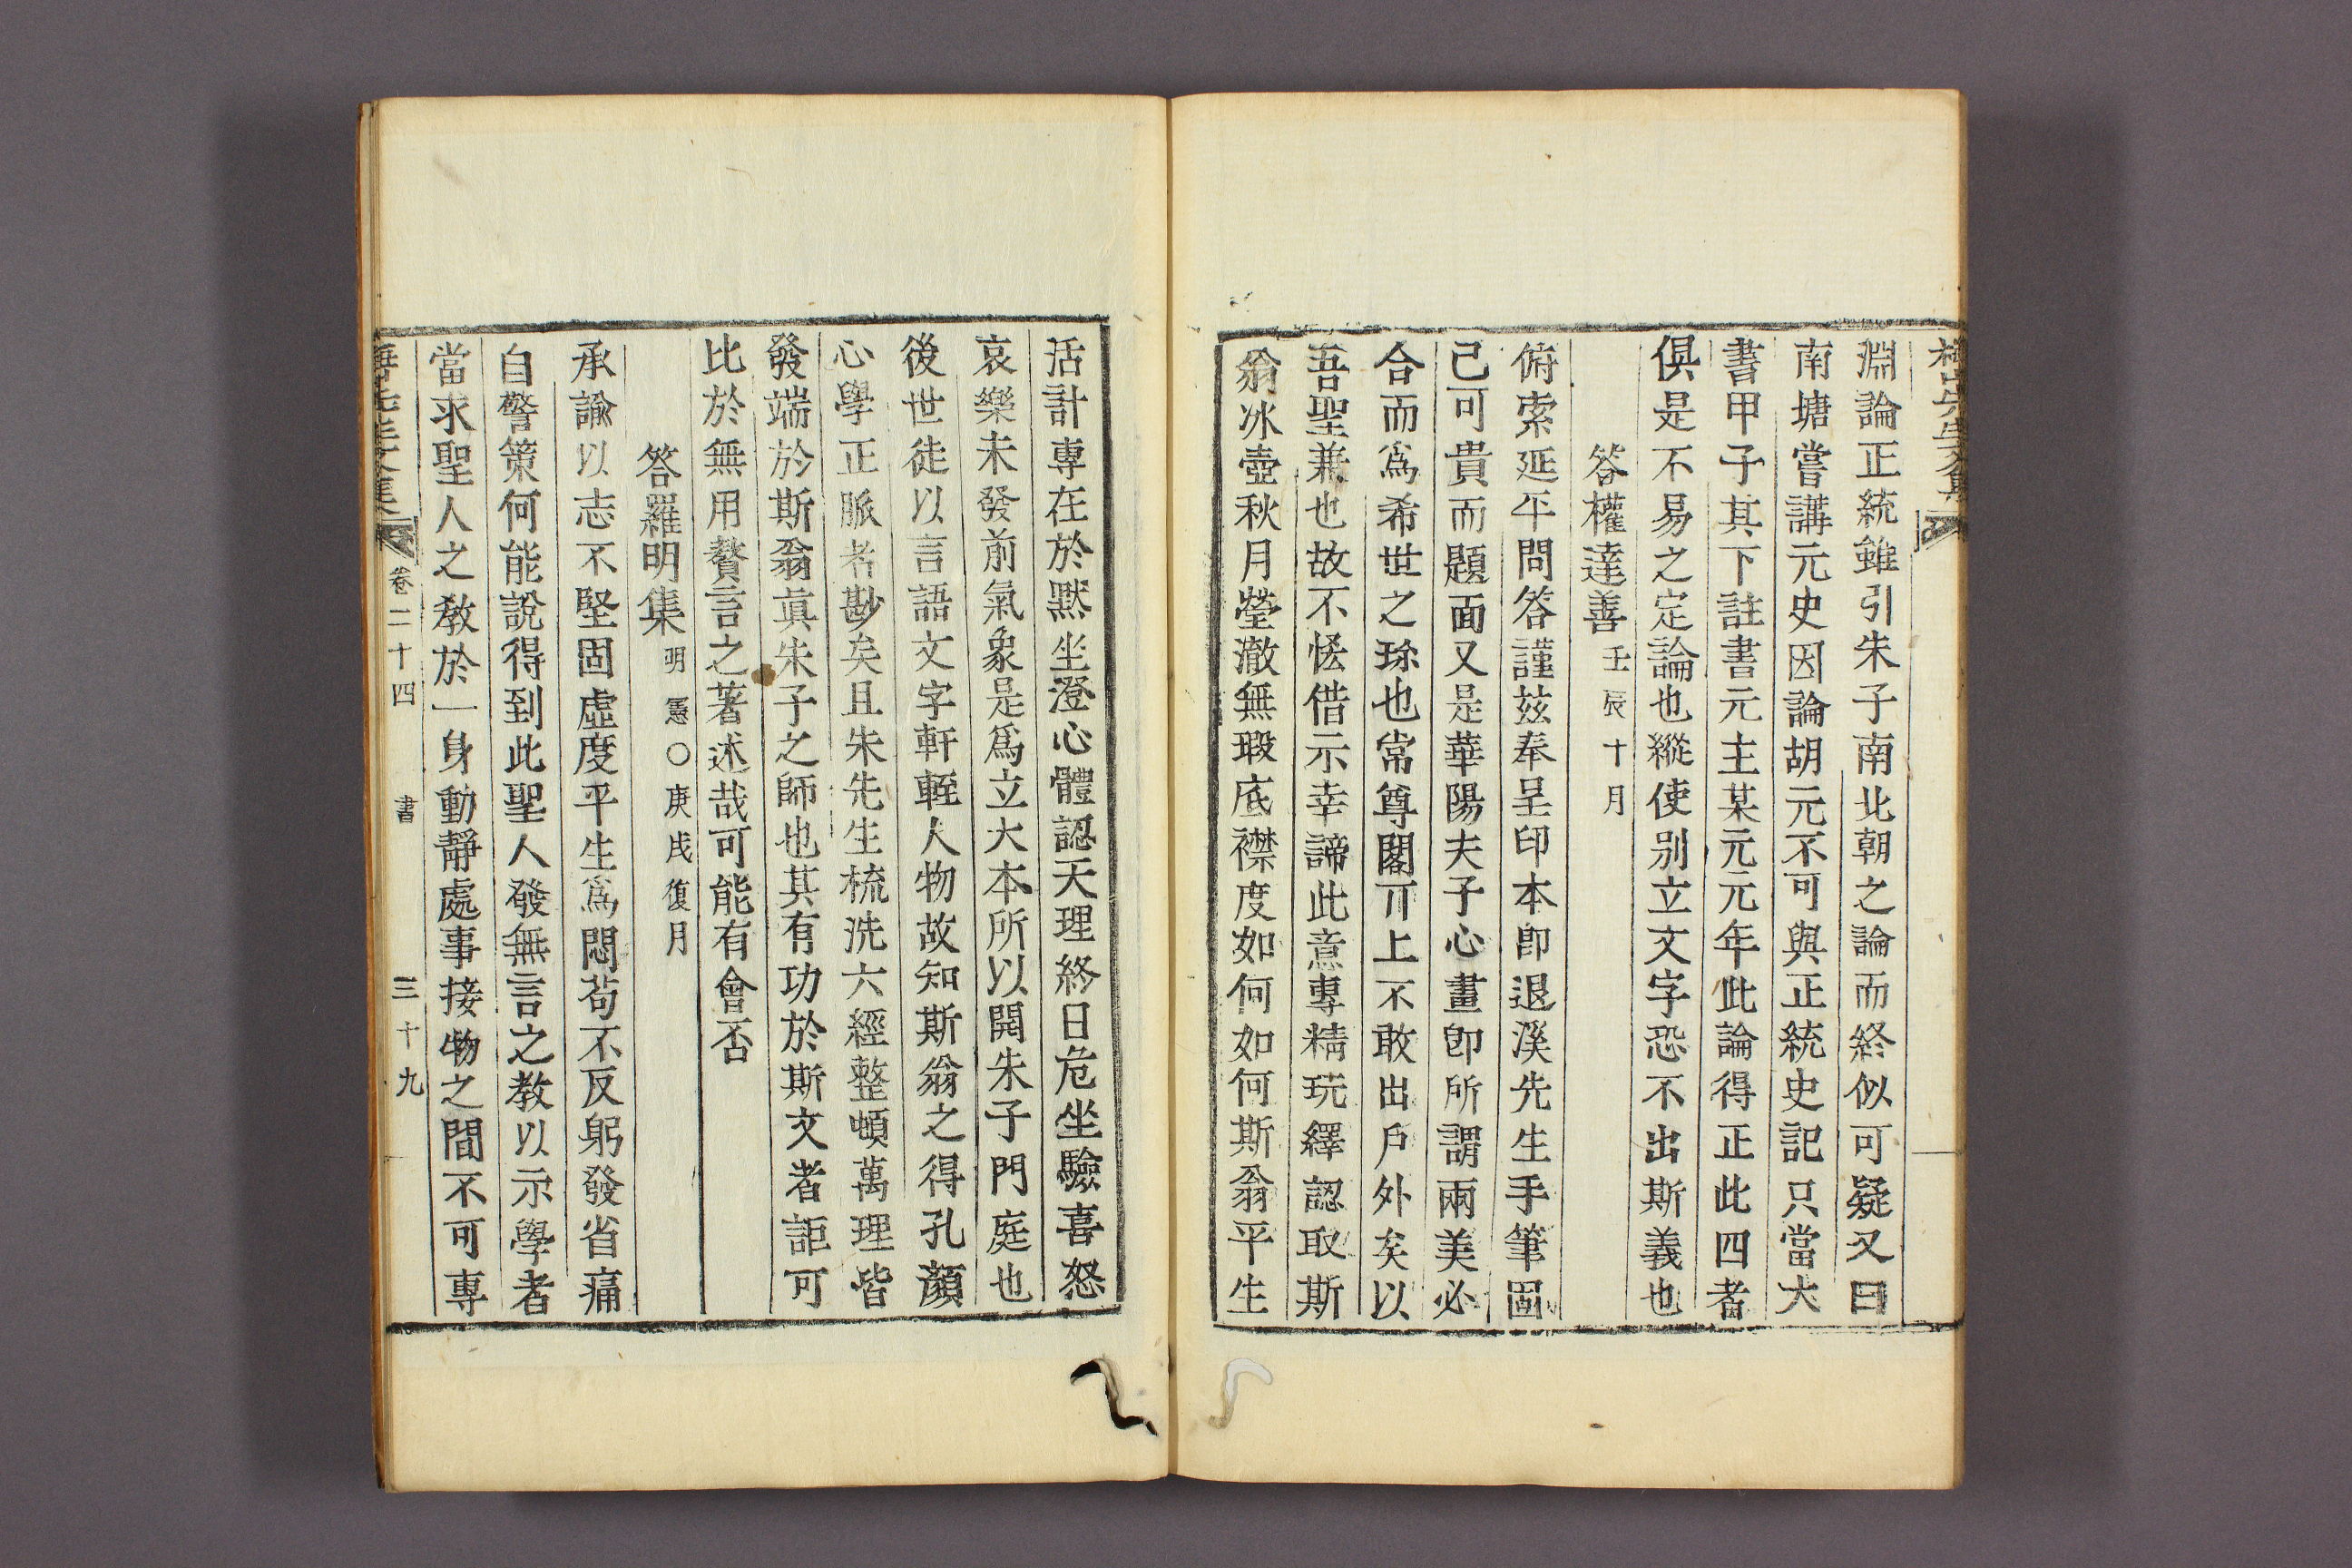 淵論正統雖引朱子南北朝之論而終似可疑又曰
南塘嘗講元史因論胡元不可與正統史記只當大
書甲子其下註書元主某元元年此論得正此四者
俱是不易之定論也縱使別立文字恐不出斯義也
答權達善 壬辰十月
俯索延平問答謹玆奉呈印本卽退溪先生手筆固
已可貴而題面又是華陽夫子心畫卽所謂兩美必
合而爲希世之珍也常尊閣丌上不敢出戶外矣以
吾聖兼也故不恡借示幸諦此意專精玩繹認取斯
翁冰壺秋月瑩澈無瑕底襟度如何如何斯翁平生
活計專在於默坐澄心體認天理終日危坐驗喜怒
哀樂未發前氣象是爲立大本所以開朱子門庭也
後世徒以言語文字軒輊人物故知斯翁之得孔顏
心學正脈者尠矣且朱先生梳洗六經整頓萬理皆
發端於斯翁眞朱子之師也其有功於斯文者詎可
比於無用贅言之著述哉可能有會否
答羅明集 明憲○庚戌復月
承諭以志不堅固虛度平生爲悶苟不反躬發省痛
自警策何能說得到此聖人發無言之敎以示學者
當求聖人之敎於一身動靜處事接物之間不可專
卷二十四 書 三十九